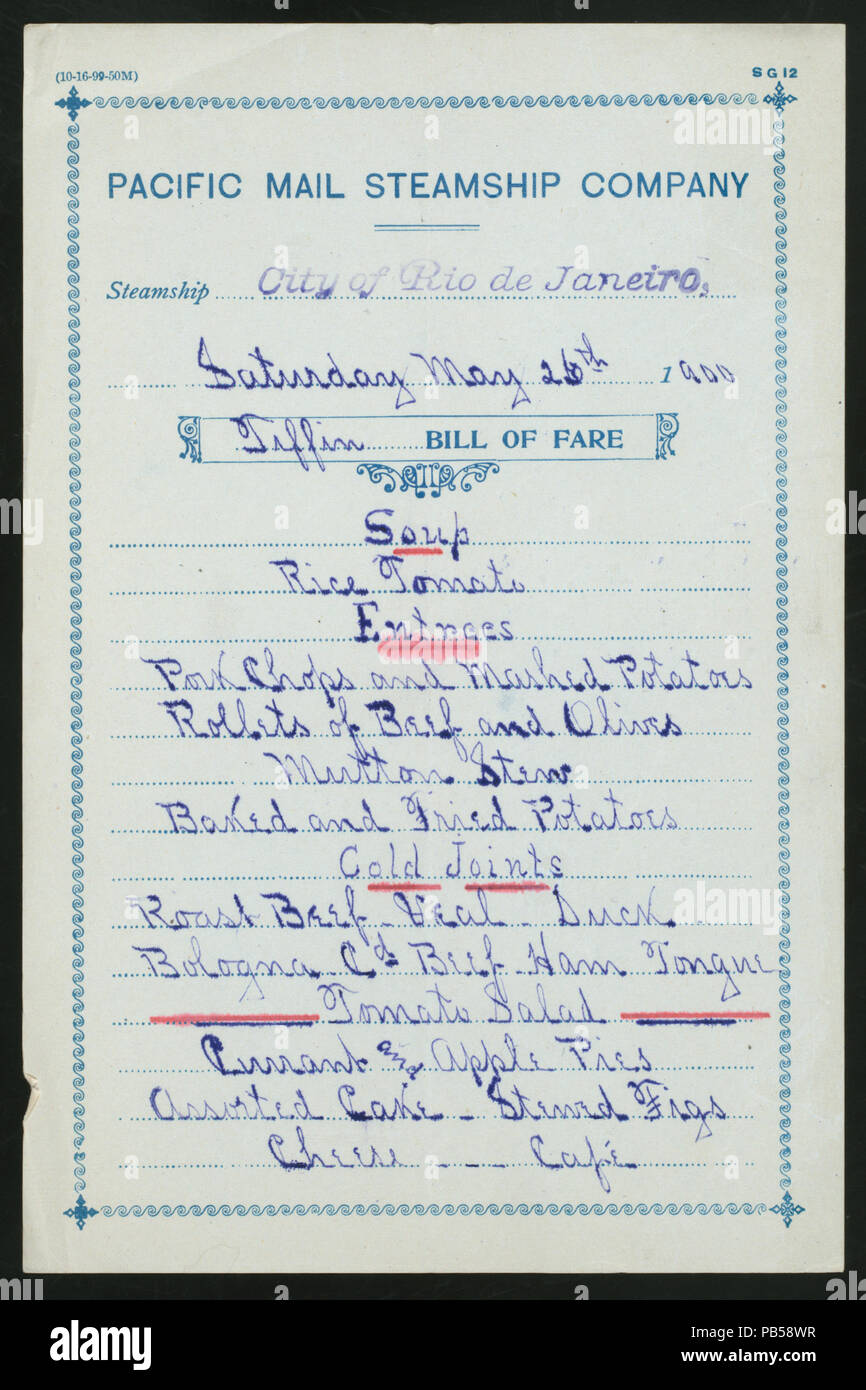 (10-16-99-50M)
SG12
PACIFIC MAIL STEAMSHIP COMPANY
Steamship City of Rio de Janeiro,
Saturday May 26th 1900
Tiffin BILL OF FARE
Soup
Rice Tomato
Entrees
Pork Chops and Mashed Potatoes
Rollets of Beef and Olives
Mutton Stew
Baked and Fried Potatoes
Cold Joints
Roast Beef - Veal - Duck
Bologna Cd Beef - Ham Tongue
Tomato Salad
Currant and Apple Pies
Assorted Cake - Stewed Figs
Cheese - - Café
a
alamy
a
alamy
a
alamy stock photo
PB58WR
www.alamy.com